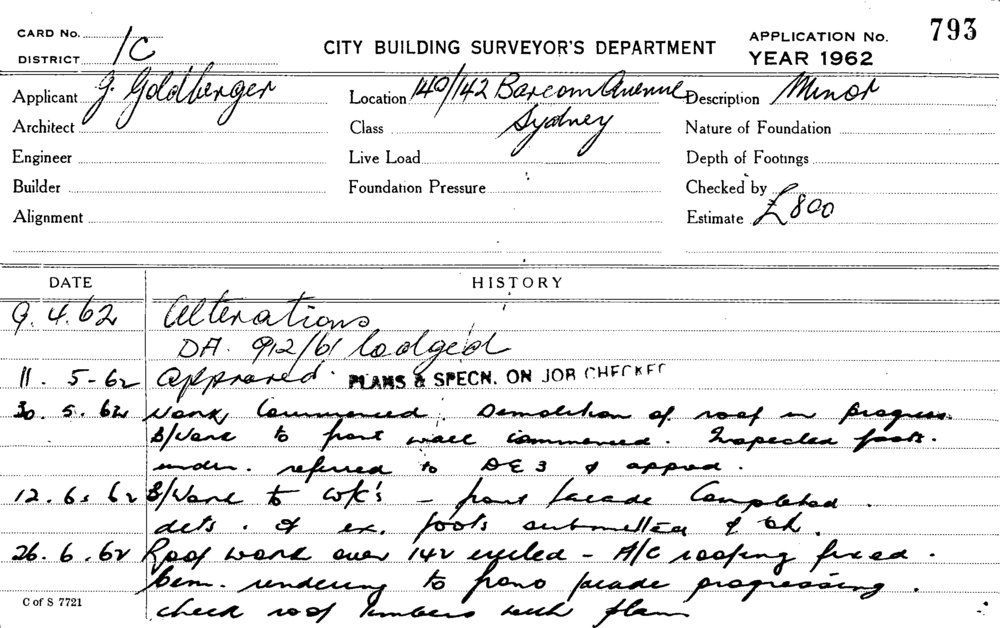 CARD No.
DISTRICT 1C
CITY BUILDING SURVEYOR'S DEPARTMENT
APPLICATION No. 793
YEAR 1962
Applicant J. Goldberger
Location 140/142 Barcom Avenue
Sydney
Description Minor
Architect
Class
Nature of Foundation
Engineer
Live Load
Depth of Footings
Builder
Foundation Pressure
Checked by
Alignment
Estimate £800
DATE HISTORY
9.4.62 Alterations
DA. 912/61 lodged
11.5-62 Approved. PLANS & SPECN. ON JOB CHECKED
30.5.62 Work Commenced. Demolition of roof in progress.
B/Work to front wall commenced. Inspected foots.
referred to & approd.
12.6.62 B/Work to W/C's - front facade Completed.
dets. of ex. foots submitted & ok.
26.6.62 Roof work over 142 - A/C roofing fixed.
Cem. rendering to front facade progressing.
check roof timbers with plan
C of S 7721